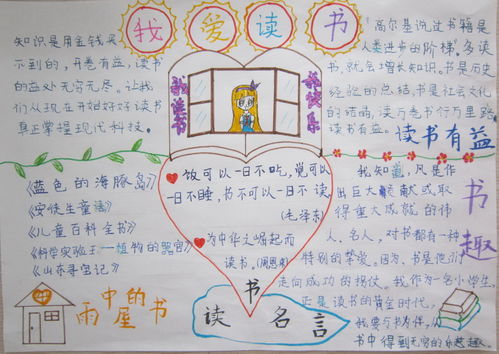 我爱读书
知识是用金钱买
不到的,开卷有益,读书
的益处无穷无尽。让我
们从现在开始好好读书
真正掌握现代科技。
我读书
我快乐
高尔基说过书籍是
人类进步的阶梯。多读
书,就会增长知识。书是历史
经验的总结,书是社会文化
的结晶,读万卷书行万里路
读书有益。
读书有益
《蓝色的海豚岛》
《安徒生童话》
《儿童百科全书》
《科学实验王—植物的器官》
《山东寻宝记》
雨中的书屋
饭可以一日不吃,觉可以
一日不睡,书不可以一日不读
(毛泽东)
为中华之崛起而
读书。(周恩来)
读书名言
书趣
我知道,凡是作
出巨大贡献或取
得重大成就的伟
人、名人,对书都有一种
特别的挚爱。因为,书是他们
走向成功的拐仗。我作为一名小学生,
正是读书的黄金时代,
我要与书为伴,从
书中得到无穷的乐趣